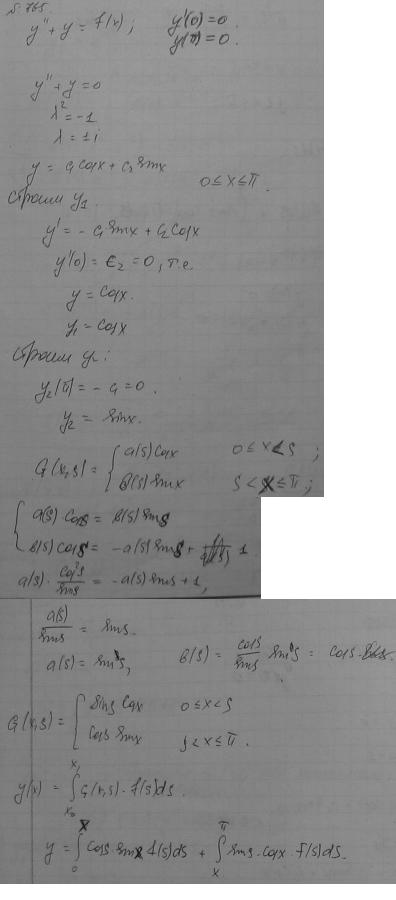 № 765.
y'' + y = f(x); y'(0) = 0.
y(π) = 0.
y'' + y = 0
λ² = -1
λ = ±i
y = c₁ cos x + c₂ sin x
0 ≤ x ≤ π.
Строим y₁.
y' = -c₁ sin x + c₂ cos x
y'(0) = c₂ = 0, т.е.
y = cos x.
y₁ = cos x
Строим y₂:
y₂(π) = -c₁ = 0.
y₂ = sin x.
G(x,s) = { a(s) cos x 0 ≤ x < s;
b(s) sin x s < x ≤ π;
{ a(s) cos s = b(s) sin s
b(s) cos s = -a(s) sin s + 1
a(s) · cos² s / sin s = -a(s) sin s + 1,
a(s) / sin s = sin s.
a(s) = sin s, b(s) = cos s / sin s sin s = cos s.
G(x,s) = { sin s cos x 0 ≤ x < s
cos s sin x s < x ≤ π.
y(x) = ∫_{x₀}^{x₁} G(x,s) · f(s) ds.
y = ∫_0^x cos s · sin x f(s) ds + ∫_x^π sin s · cos x · f(s) ds.